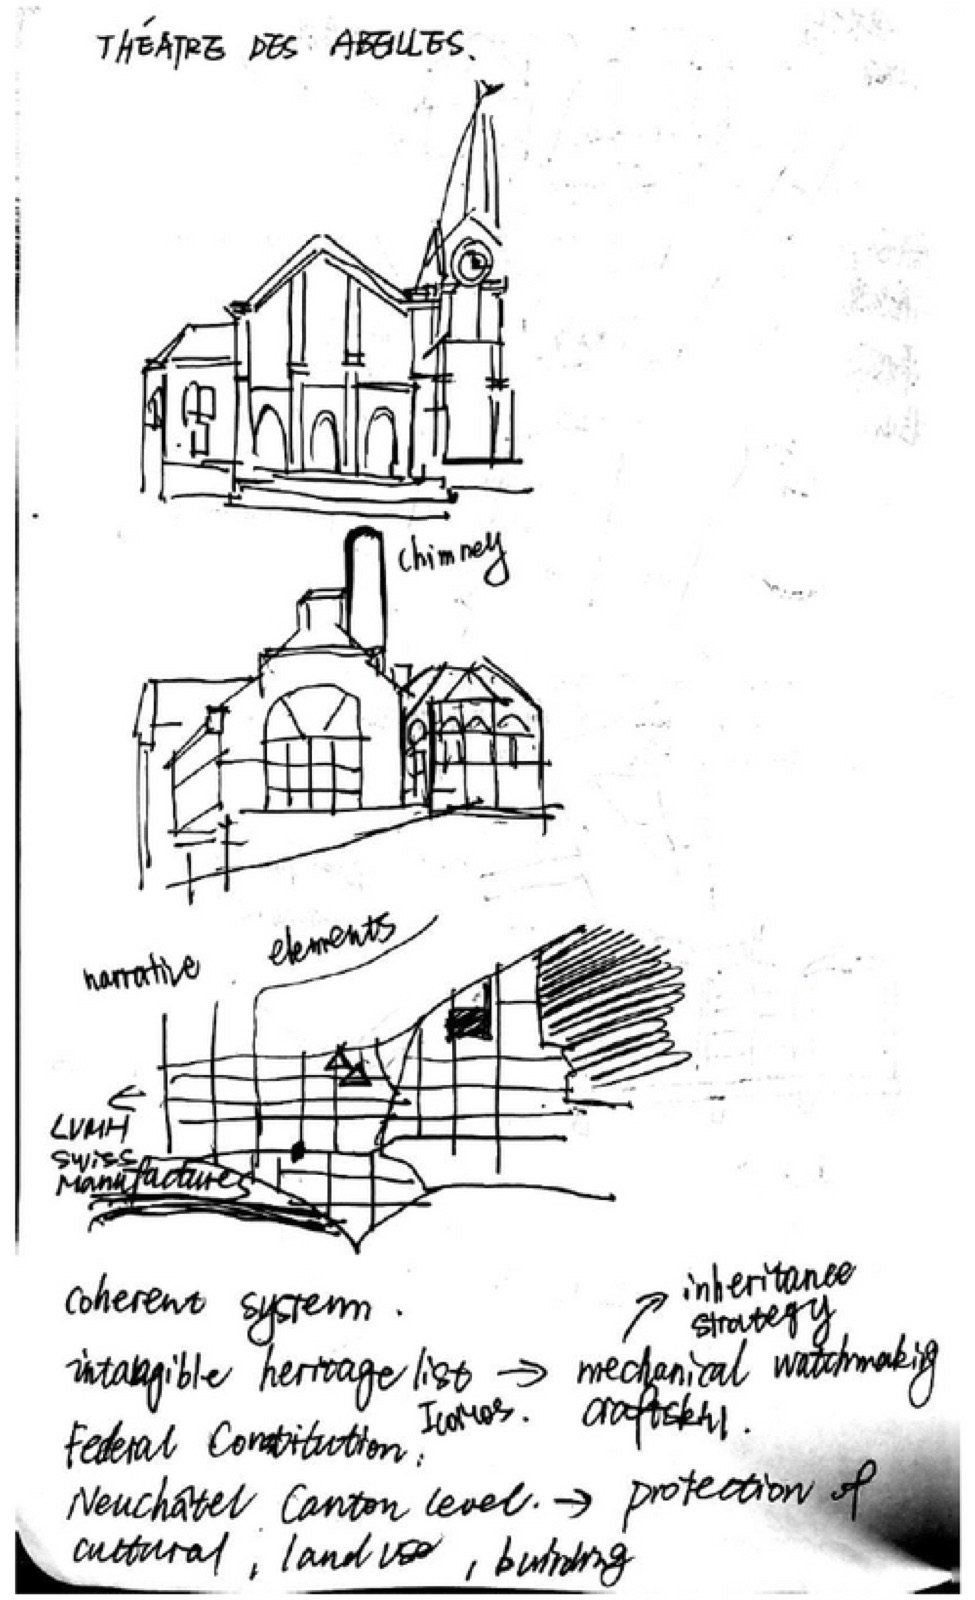 THÉATRE DES ABEILLES.
chimney
narrative elements
LVMH
SWISS
Manufactures
coherent system.
inheritance
strategy
intangible heritage list → mechanical watchmaking
Icomos. craftskill.
Federal Constitution.
Neuchâtel Canton Level. → protection of
cultural, land use, building